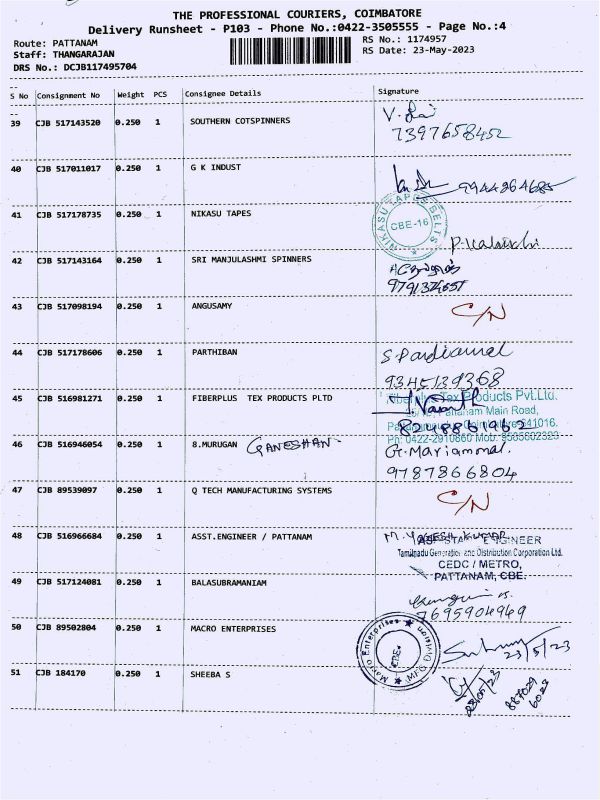 THE PROFESSIONAL COURIERS, COIMBATORE
Delivery Runsheet - P103 - Phone No.:0422-3505555 - Page No.:4
Route: PATTANAM
Staff: THANGARAJAN
DRS No.: DCJB117495704
RS No.: 1174957
RS Date: 23-May-2023
S No Consignment No Weight PCS Consignee Details Signature
39 CJB 517143520 0.250 1 SOUTHERN COTSPINNERS
7397658452
40 CJB 517011017 0.250 1 G K INDUST
9944264685
41 CJB 517178735 0.250 1 NIKASU TAPES
NIKASU TAPES BELTS
CBE-16
42 CJB 517143164 0.250 1 SRI MANJULASHMI SPINNERS
43 CJB 517098194 0.250 1 ANGUSAMY C/N
44 CJB 517178606 0.250 1 PARTHIBAN
9345139368
45 CJB 516981271 0.250 1 FIBERPLUS TEX PRODUCTS PLTD
Fiberplus Tex Products Pvt.Ltd.
Main Road,
641016.
Ph: 0422-2910860 Mob:
8248861962
46 CJB 516946054 0.250 1 8.MURUGAN GANESHAN
G.Mariammal.
9787866804
47 CJB 89539097 0.250 1 Q TECH MANUFACTURING SYSTEMS C/N
48 CJB 516966684 0.250 1 ASST.ENGINEER / PATTANAM
ENGINEER
Tamilnadu Generation and Distribution Corporation Ltd.
CEDC / METRO,
PATTANAM, CBE.
49 CJB 517124081 0.250 1 BALASUBRAMANIAM
7695904949
50 CJB 89502804 0.250 1 MACRO ENTERPRISES
Macro Enterprises
CBE
23/5/23
51 CJB 184170 0.250 1 SHEEBA S